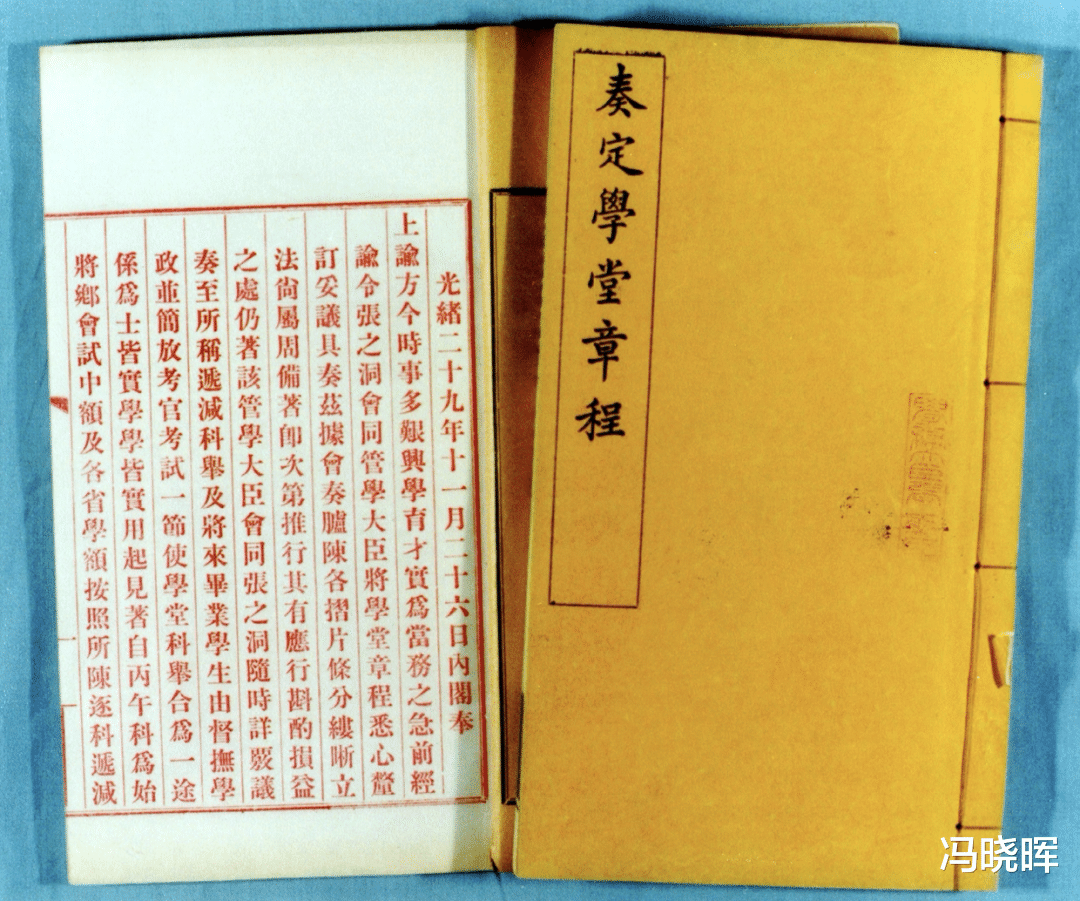 奏定學堂章程
光緒二十九年十一月二十六日內閣奉
上諭方今時事多艱興學育才實爲當務之急前經
諭令張之洞會同管學大臣將學堂章程悉心釐
訂妥議具奏茲據會奏臚陳各摺片條分縷晰立
法尙屬周備著卽次第推行其有應行斟酌損益
之處仍著該管學大臣會同張之洞隨時詳覈議
奏至所稱遞減科舉及將來畢業學生由督撫學
政並簡放考官考試一節使學堂科舉合爲一途
係爲士皆實學學皆實用起見著自丙午科爲始
將鄉會試中額及各省學額按照所陳逐科遞減
冯晓晖